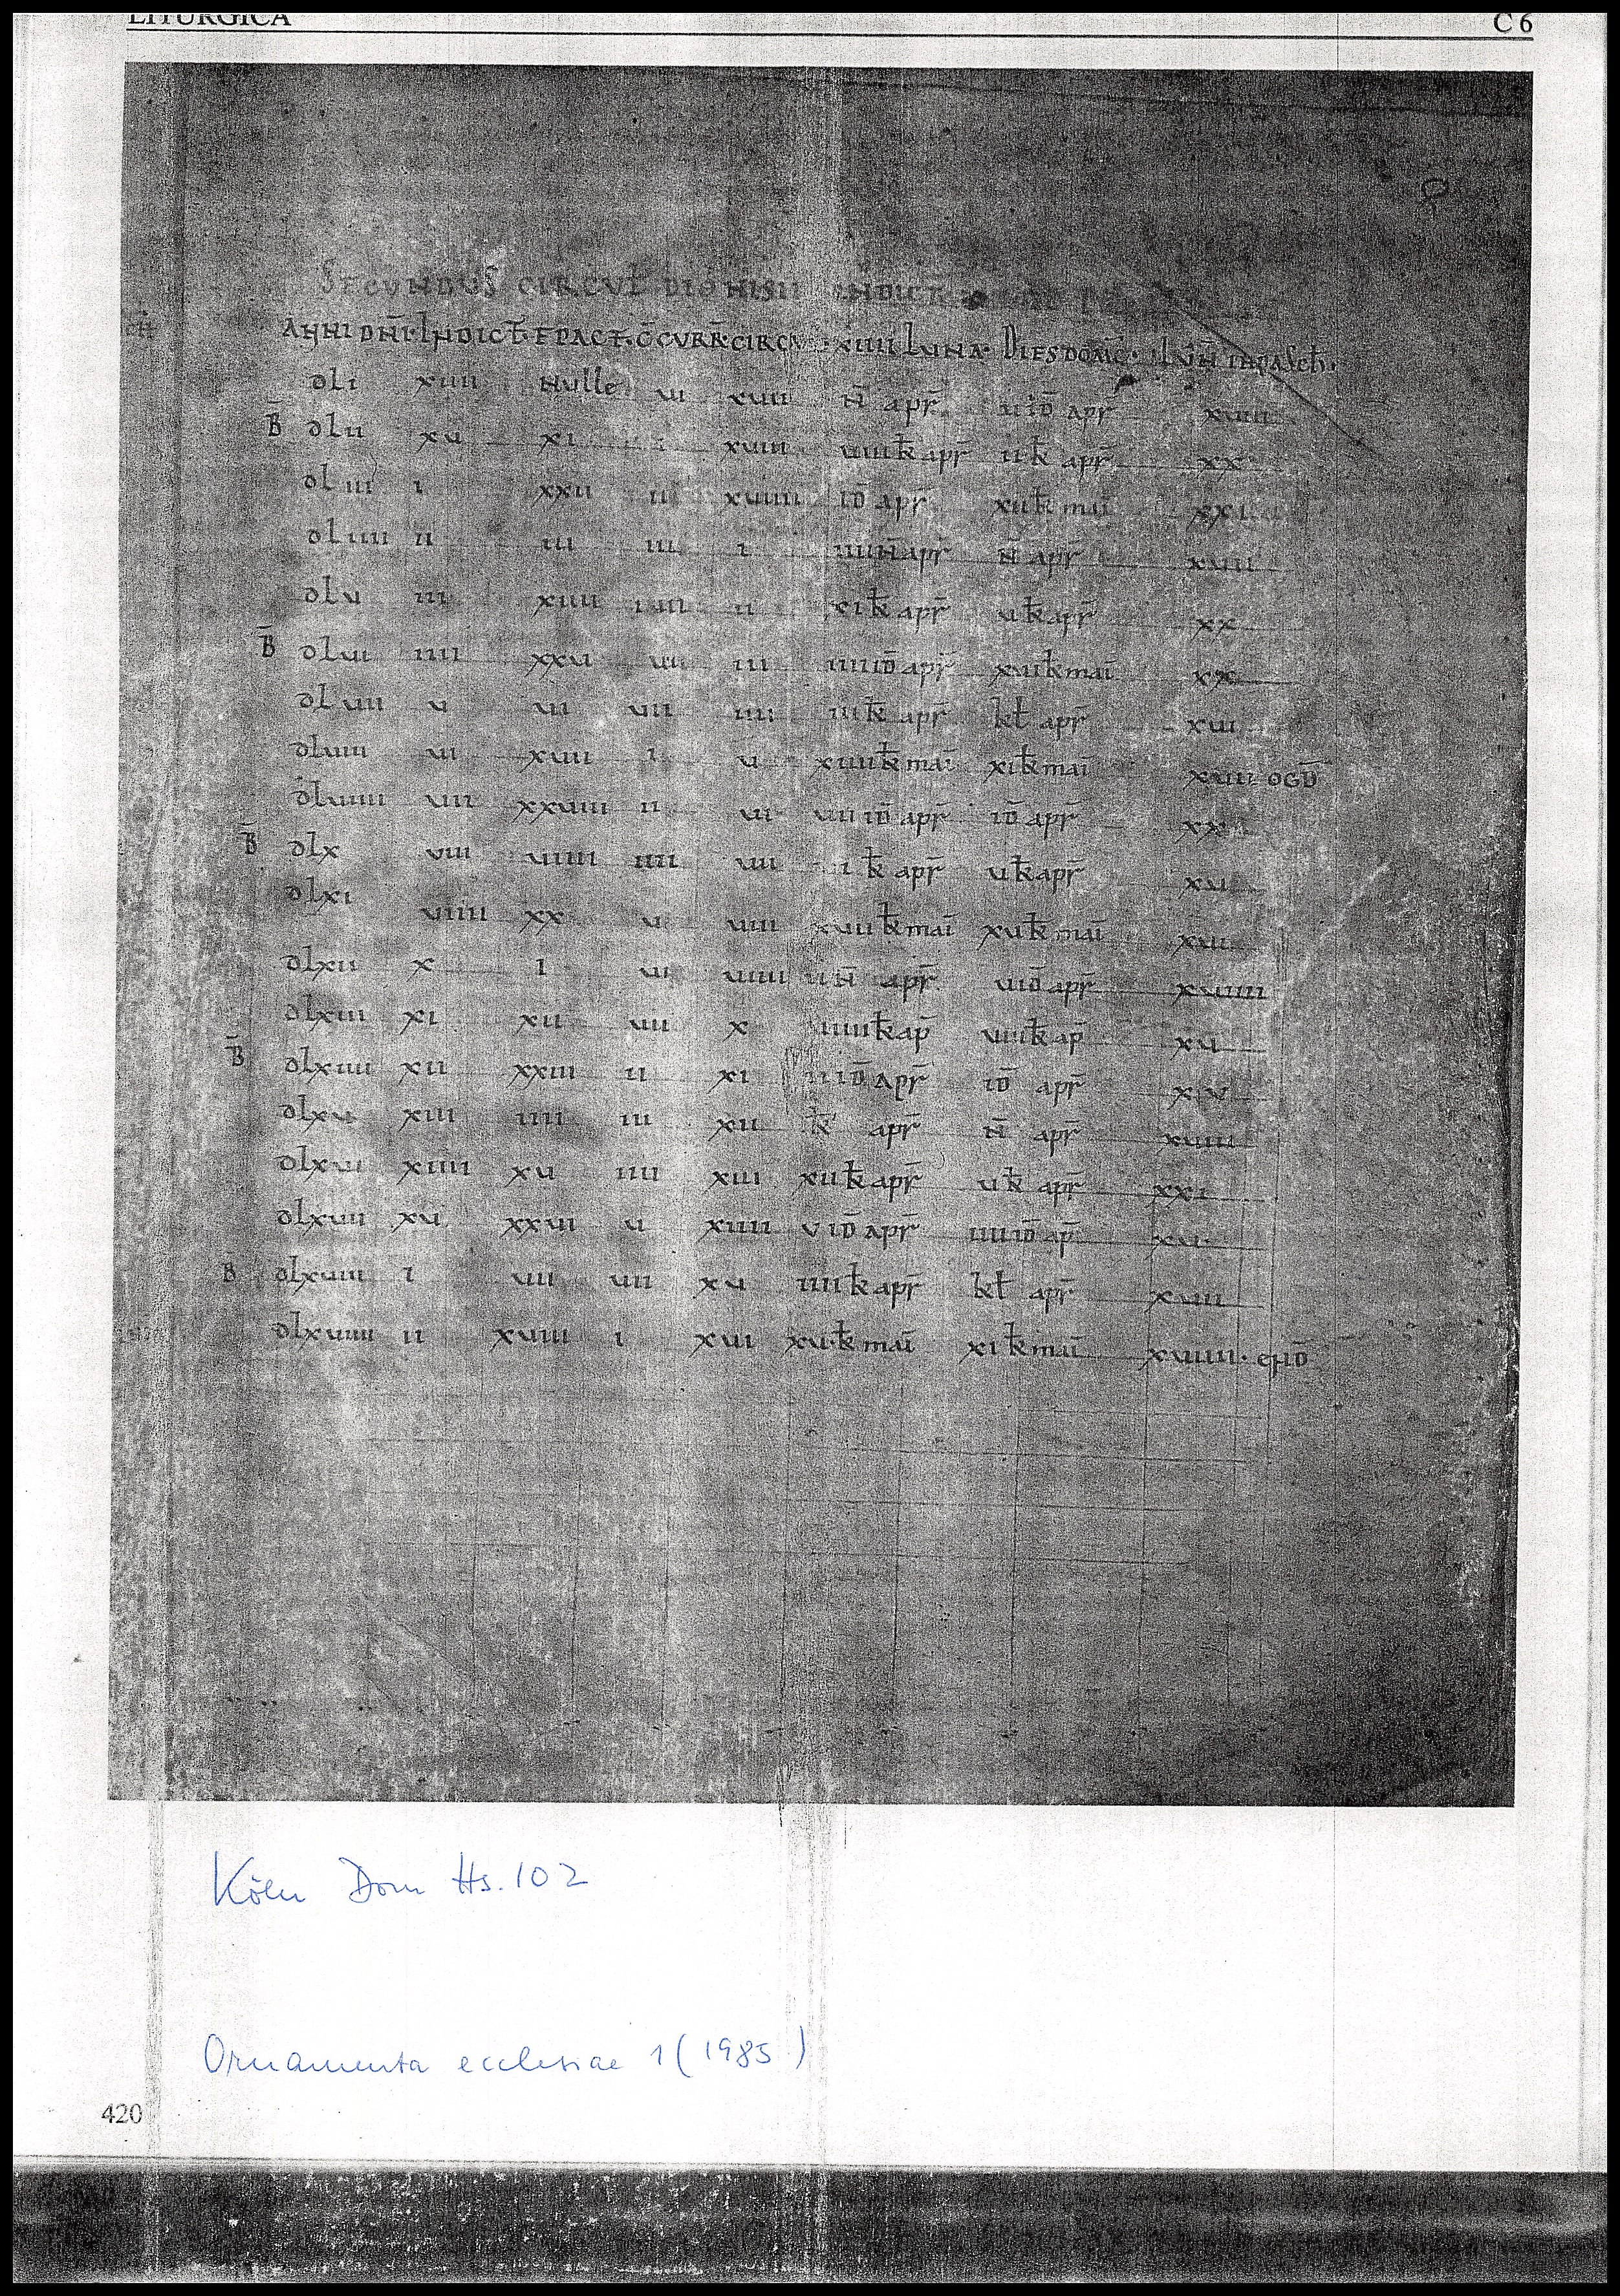 LITURGICA C 6
SECUNDUS CIRCUL̄ DIONISII
ANNI DN̄I· INDICT̄· EPACT· C̄CURR̄· CIRCU XIIII LUNA· DIES DOMC̄· LUN̄ IN PASCH̄·
dli xiiii Nulle vi xvii N̄ apr̄ v iD̄ apr xviiii
B̄ dlii xv xi i xviii viiik̄ apr̄ iik̄ apr̄ xx
dliii i xxii ii xviiii iD̄ apr̄ xiik̄ mai xxi
dliiii ii iii iii i iiiiN̄ apr̄ N̄ apr̄ xvii
dlv iii xiiii iiii ii xik̄ apr̄ vk̄ apr̄ xx
B̄ dlvi iiii xxv vi iii iiiiiD̄ apr̄ xvik̄ mai xx
dlvii v vi vii iiii iiik̄ apr̄ kł apr̄ xvi
dlviii vi xvii i v xiiiik̄ mai xik̄ mai xvii OGD̄
dlviiii vii xxviii ii vi viiiD̄ apr̄ iD̄ apr̄ xx
B̄ dlx viii viiii iiii vii k̄ apr̄ vk̄ apr̄ xv
dlxi viiii xx v viii xviik̄ mai xvk̄ mai xvi
dlxii x i vi viiii iiN̄ apr̄ viD̄ apr̄ xviiii
dlxiii xi xii vii x viiiik̄ ap̄ viiik̄ ap̄ xv
B̄ dlxiiii xii xxiii ii xi iiiD̄ apr̄ iD̄ apr̄ xv
dlxv xiii iiii iii xii k̄ apr̄ N̄ apr̄ xviii
dlxvi xiiii xv iiii xiii xiik̄ apr̄ vk̄ apr̄ xxi
dlxvii xv xxvi v xiiii viD̄ apr̄ iiiiiD̄ ap̄ xvi
B dlxviii i vii vii xv iiiik̄ apr̄ kł apr̄ xvii
dlxviiii ii xviii i xvi xv·k̄ mai xik̄ mai xviiii· eND̄
Köln Dom Hs. 102
Ornamenta ecclesiae 1 (1985)
420